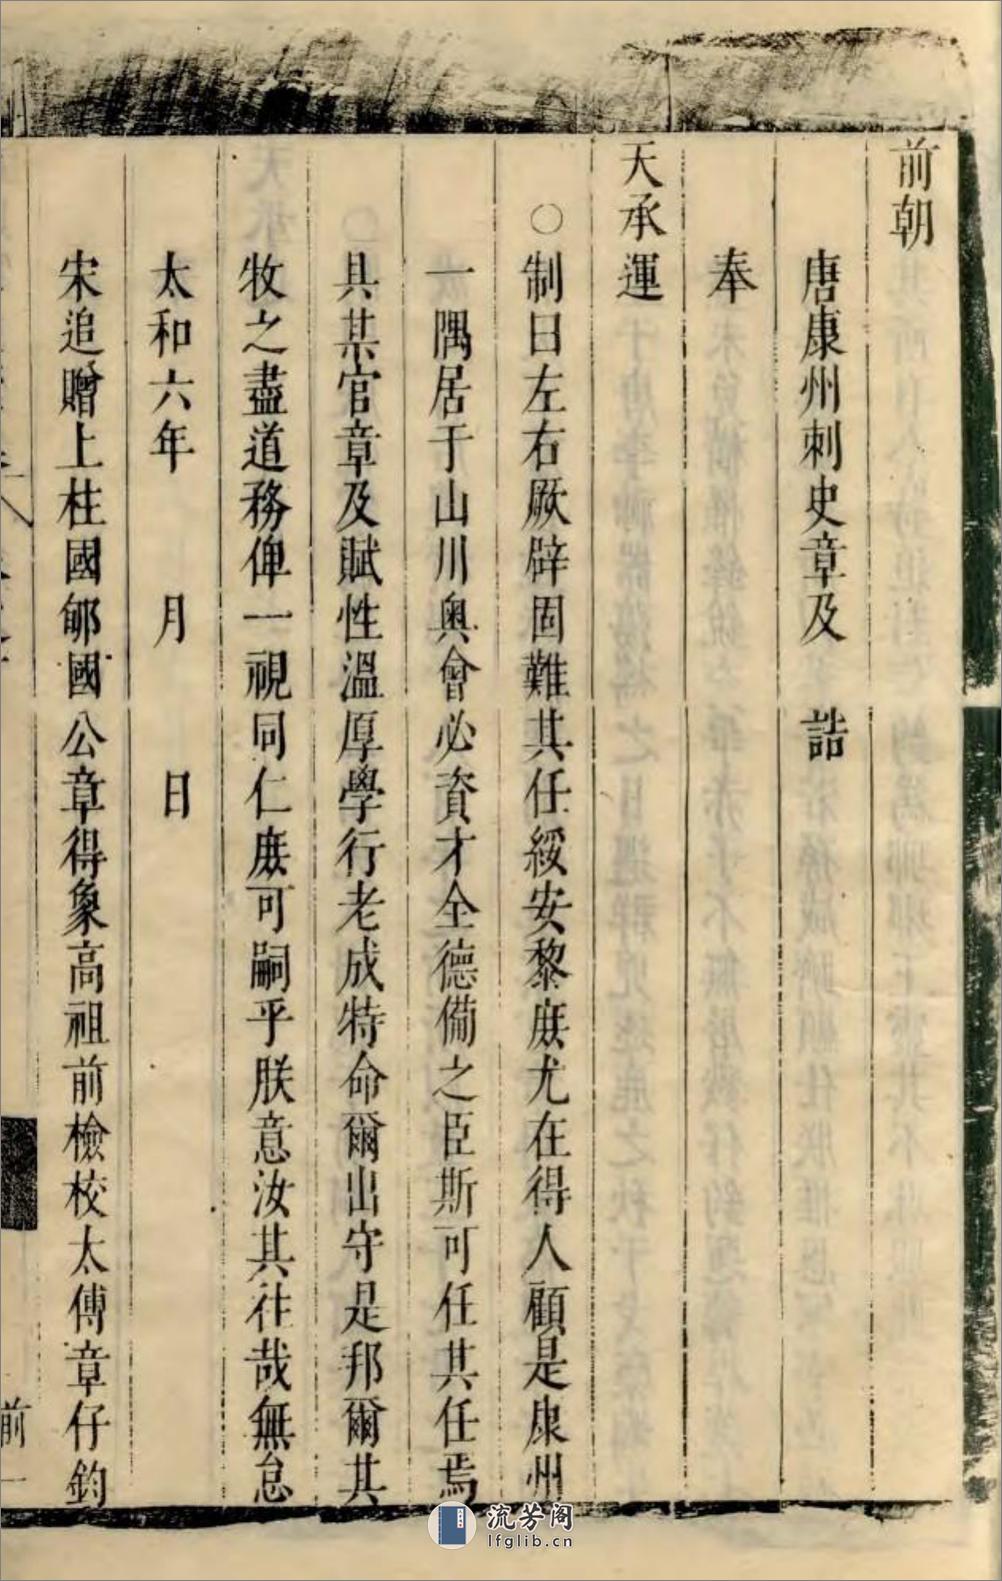 前朝
唐康州刺史章及　誥
奉
天承運
○制曰左右厥辟固難其任綏安黎庶尤在得人顧是康州
一隅居于山川奧會必資才全德備之臣斯可任其任焉
具某官章及賦性溫厚學行老成特命爾出守是邦爾其
牧之盡道務俾一視同仁庶可嗣乎朕意汝其往哉無怠
太和六年　　月　　日
宋追贈上柱國郇國公章得象高祖前檢校太傅章仔鈞
前一
流芳阁
lfglib.cn